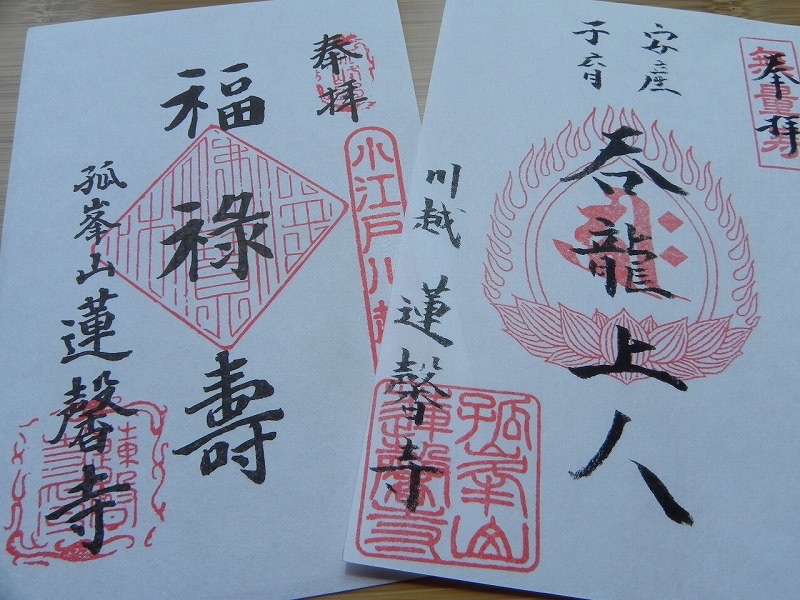 奉拝
福禄壽
小江戸川越
孤峯山 蓮馨寺
無量寿
奉拝
安産
子育
呑龍上人
川越 蓮馨寺
孤峯山
蓮馨寺